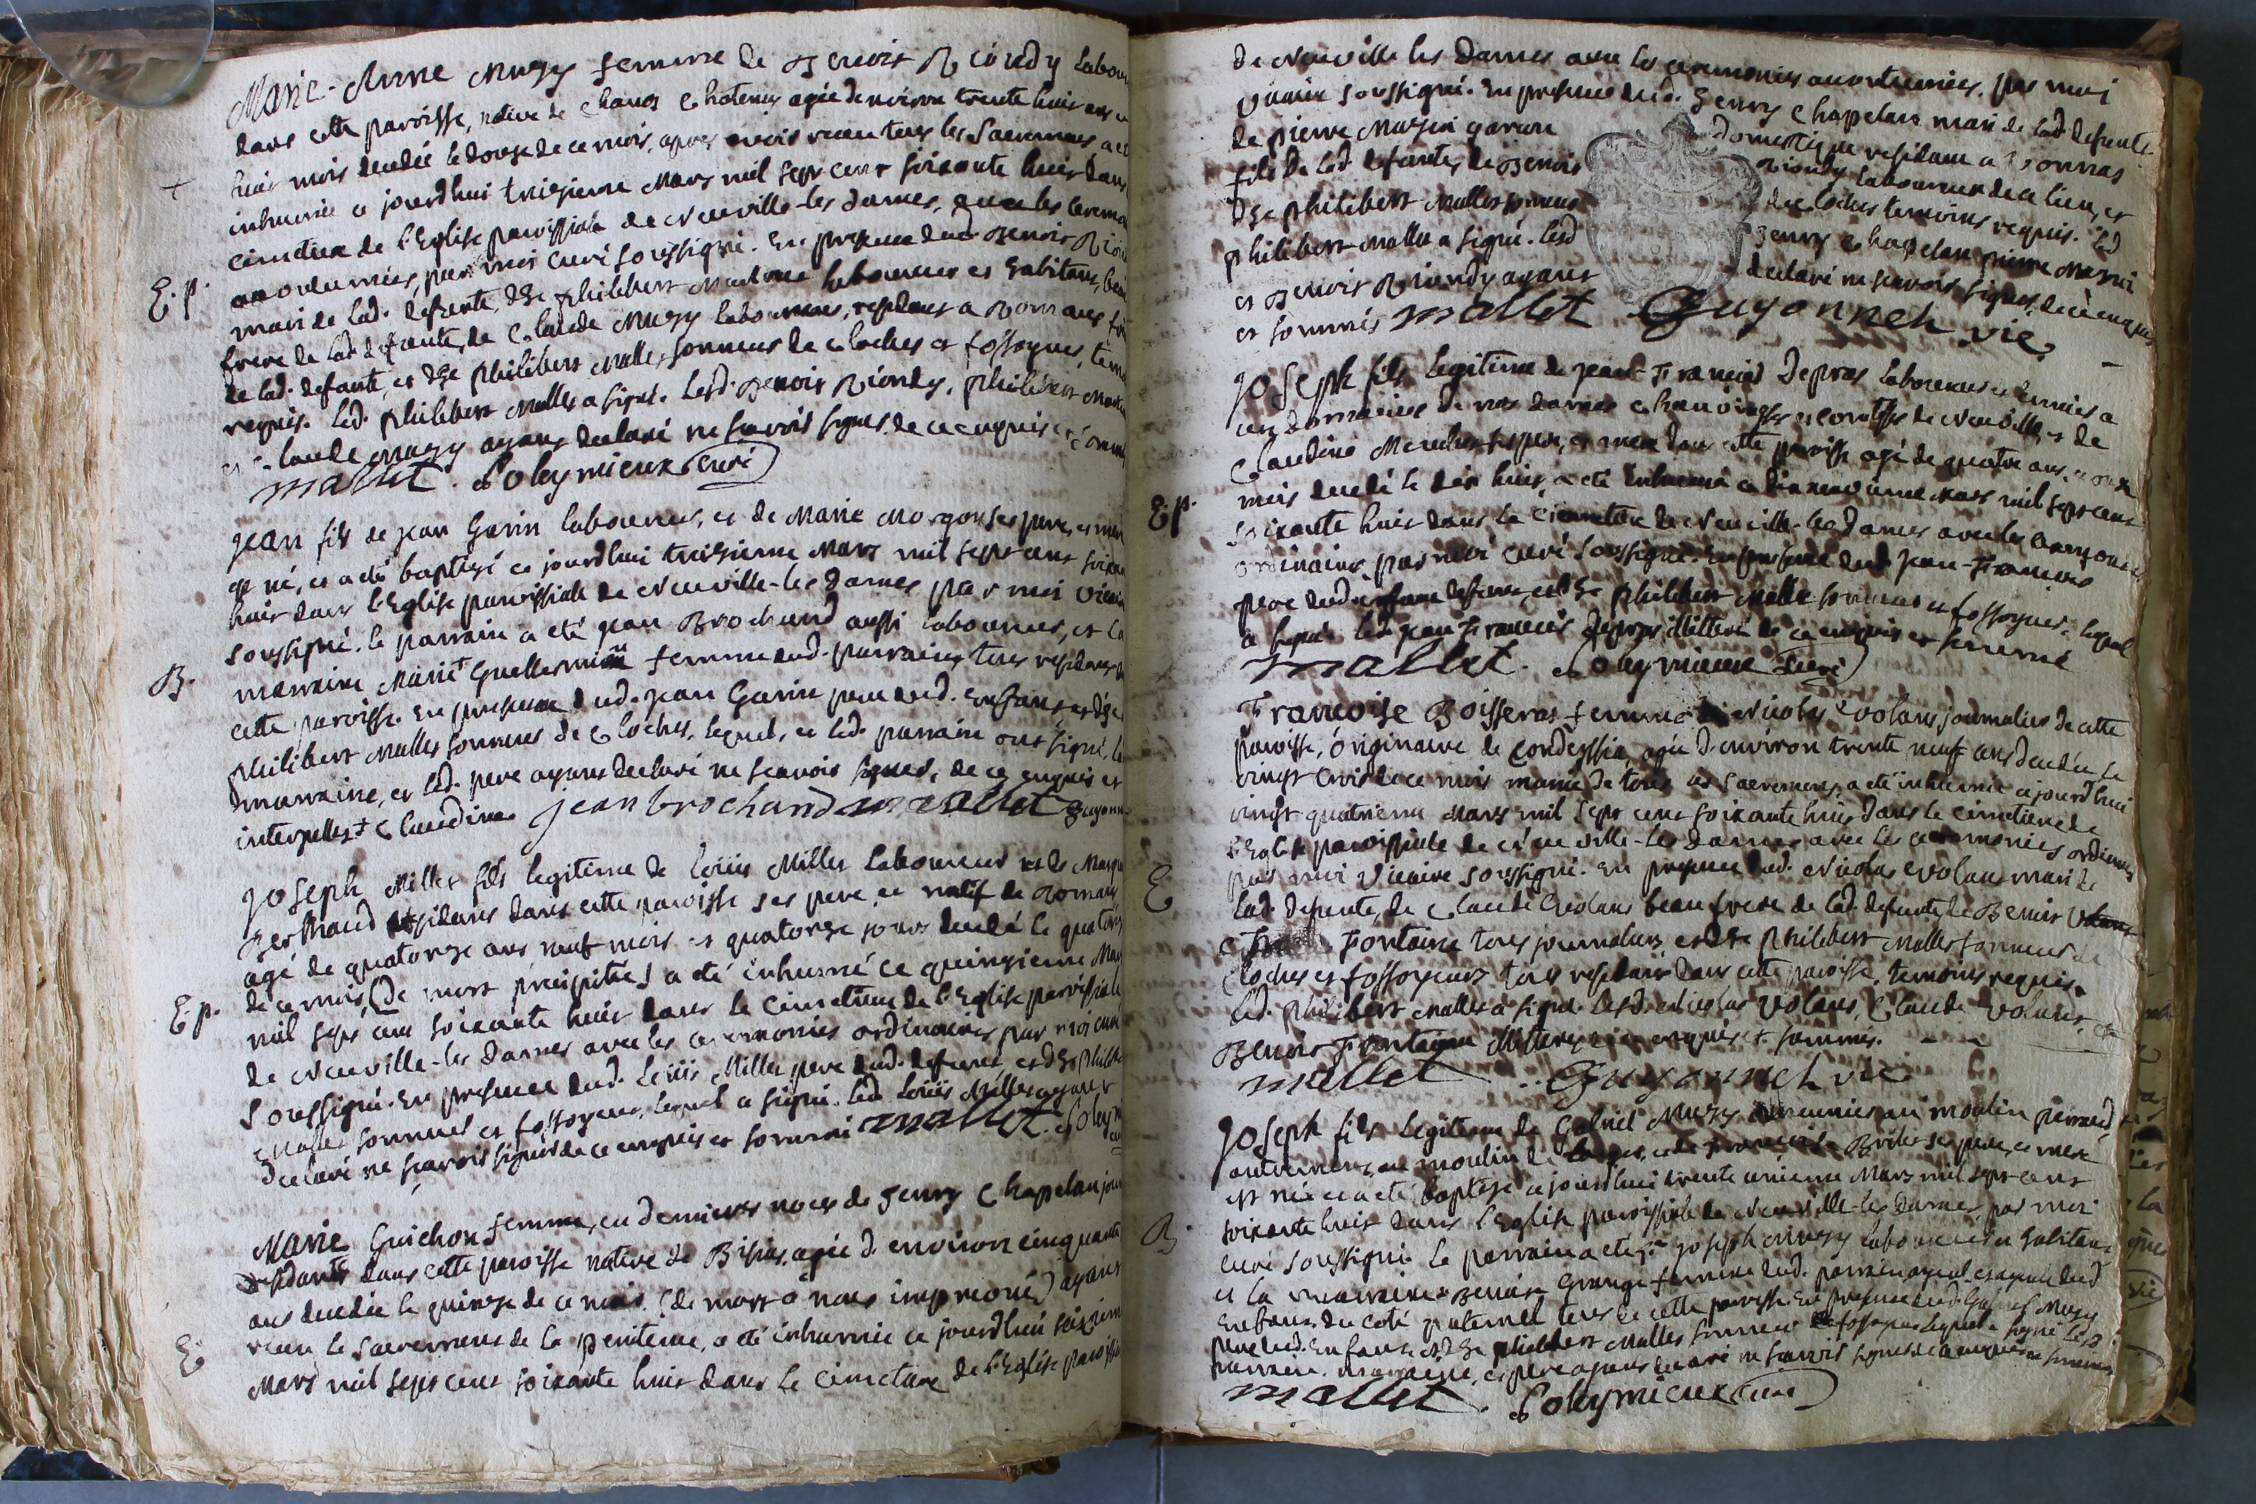 Marie-Anne Muzy femme de Benoit Riondy labou
dans cette paroisse, native de Chanoz Chatenay agée denviron trente huit ans
huit mois decedée le douze de ce mois, apres avoir receu tous les Sacremens a eté
inhumée ce jourdhui treizieme Mars mil sept cent soixante huit dans
cimetiere de l'Eglise paroissiale de Neuville-les Dames, avec les ceremo
accoutumées, par moi curé soussigné. En presence dud. Benoit Rion
E. p.
mari de lad. defunte, d'hr philibert laboureur et habitant, beau
frere de lad. defunte, de Claude Muzy laboureur, residant a Romans
de lad. defunte, et d'hr philibert Mallet sonneur de cloches et fossoyeur, temo
requis. Led. philibert Mallet a signé. Lesd. Benoit Riondy, philibert
et Claude Muzy ayans declaré ne scavoir signer, de ce enquis et somm
mallet. Poleymieux curé
jean fils de jean Garin laboureur, et de Marie ses pere, et mere
est né, et a eté baptisé ce jourdhui treizieme Mars mil sept cent soixan
huit dans l'Eglise paroissiale de Neuville-les Dames par moi vicaire
soussigné. le parrain a eté jean Brochand aussi laboureur, et la
B.
marraine Marie + Guillermin femme dud. parrain, tous residans
cette paroisse. En presence dud. jean Garin pere dud. enfant et d'hr
philibert Mallet sonneur de Cloches, lequel, et led. parrain ont signé, la
d. marraine, et led. pere ayans declaré ne scavoir signer, de ce enquis et
interpellés + Claudine. jean brochand mallet Guyonn
joseph Millet fils legitime de Loüis Millet laboureur et de Marg
Berthaud residans dans cette paroisse ses pere, et natif de Roman
agé de quatorze ans neuf mois et quatorze jours decedé le quator
de ce mois (de mort précipitée) a eté inhumé ce quinzieme Mar
E. p.
mil sept cent soixante huit dans le cimetiere de l'Eglise paroissiale
de Neuville-les Dames avec les ceremonies ordinaires par moi curé
soussigné. En presence dud. Loüis Millet pere dud. defunt, et d'hr Philib
Mallet sonneur et fossoyeur, lequel a signé. led. Loüis Millet ayant
declaré ne scavoir signer de ce enquis et sommé mallet. Poleym
Marie Guichon femme, en dernieres noces de henry Chapelan jou
residants dans cette paroisse native de agée d'environ cinquante
ans decedée le quinze de ce mois (de mort a nous imprevue) ayant
receu le Sacrement de la penitence, a eté inhumée ce jourdhui seizieme
E.
Mars mil sept cent soixante huit dans le cimetiere de l'Eglise paroissi
de Neuville les Dames avec les ceremonies accoutumées, par moi
vicaire soussigné. En presence dud. henry Chapelan mari de lad. defunte
de pierre garçon domestique residant a
fils de lad. defunte, de Benoit Riondy laboureur de ce lieu, et
d'hr philibert Mallet sonneur de cloches temoins requis. led
philibert Mallet a signé. lesd henry Chapelan pierre
et Benoit Riondy ayans declaré ne scavoir signer, de ce enquis
et sommés mallet Guyonneh vic.
joseph fils legitime de jean-François Depras laboureur et fermier a
un domaine de nos dames chanoinesses et comtesses de Neuville et de
Claudine ses pere, et mere dans cette paroisse agé de quatre ans, et onze
mois decedé le dix huit, a eté inhumé ce dixneuvieme mars mil sept cent
E. p.
soixante huit dans le cimetiere de Neuville-les Dames avec les ceremonies
ordinaires par moi curé soussigné. En presence dud. jean-François
pere dud. defunt, et d'hr philibert Mallet sonneur et fossoyeur, lequel
a signé. led. jean François Depras illitteré de ce enquis et sommé
mallet. Poleymieux curé
Françoise Boisseras femme de Nicolas volans journalier de cette
paroisse, originaire de Condeyssia, agée d'environ trente neuf ans decedée le
vingt trois de ce mois munie de tous les Sacremens, a eté inhumée ce jourdhui
vingt quatrieme Mars mil sept cent soixante huit dans le cimetiere de
l'Eglise paroissiale de Neuville-les-Dames avec les ceremonies ordinaires
par moi Vicaire soussigné. En presence dud. Nicolas volans mari de
E.
lad. defunte, de Claude volans beau frere de lad. defunte, de Benoit
Fontaine tous journaliers, et d'hr philibert Mallet sonneur de
cloches et fossoyeur, tous residans dans cette paroisse, temoins requis.
led. philibert Mallet a signé. lesd. Nicolas volans, Claude volans, et
Benoit Fontaine illiterés de ce enquis et sommés.
mallet Guyonneh vic
joseph fils legitime de Gabriel Muzy meunier au moulin
autrement, au moulin de et de Françoise ses pere, et mere
est né, et a eté baptisé ce jourdhui trente unieme Mars mil sept cent
B.
soixante huit dans l'Eglise paroissiale de Neuville-les Dames, par moi
curé soussigné. Le parrain a eté joseph Muzy laboureur et habitant
et la marraine Benoite Grange femme dud. parrain ayeul, et ayeule dud
enfant du coté paternel tous de cette paroisse. En presence dud. Gabriel Muzy
pere dud. enfant, et d'hr philibert Mallet sonneur et fossoyeur lequel a signé lesd
parrain, marraine, et pere ayans declaré ne scavoir signer de ce enquis et sommés
mallet. Poleymieux curé